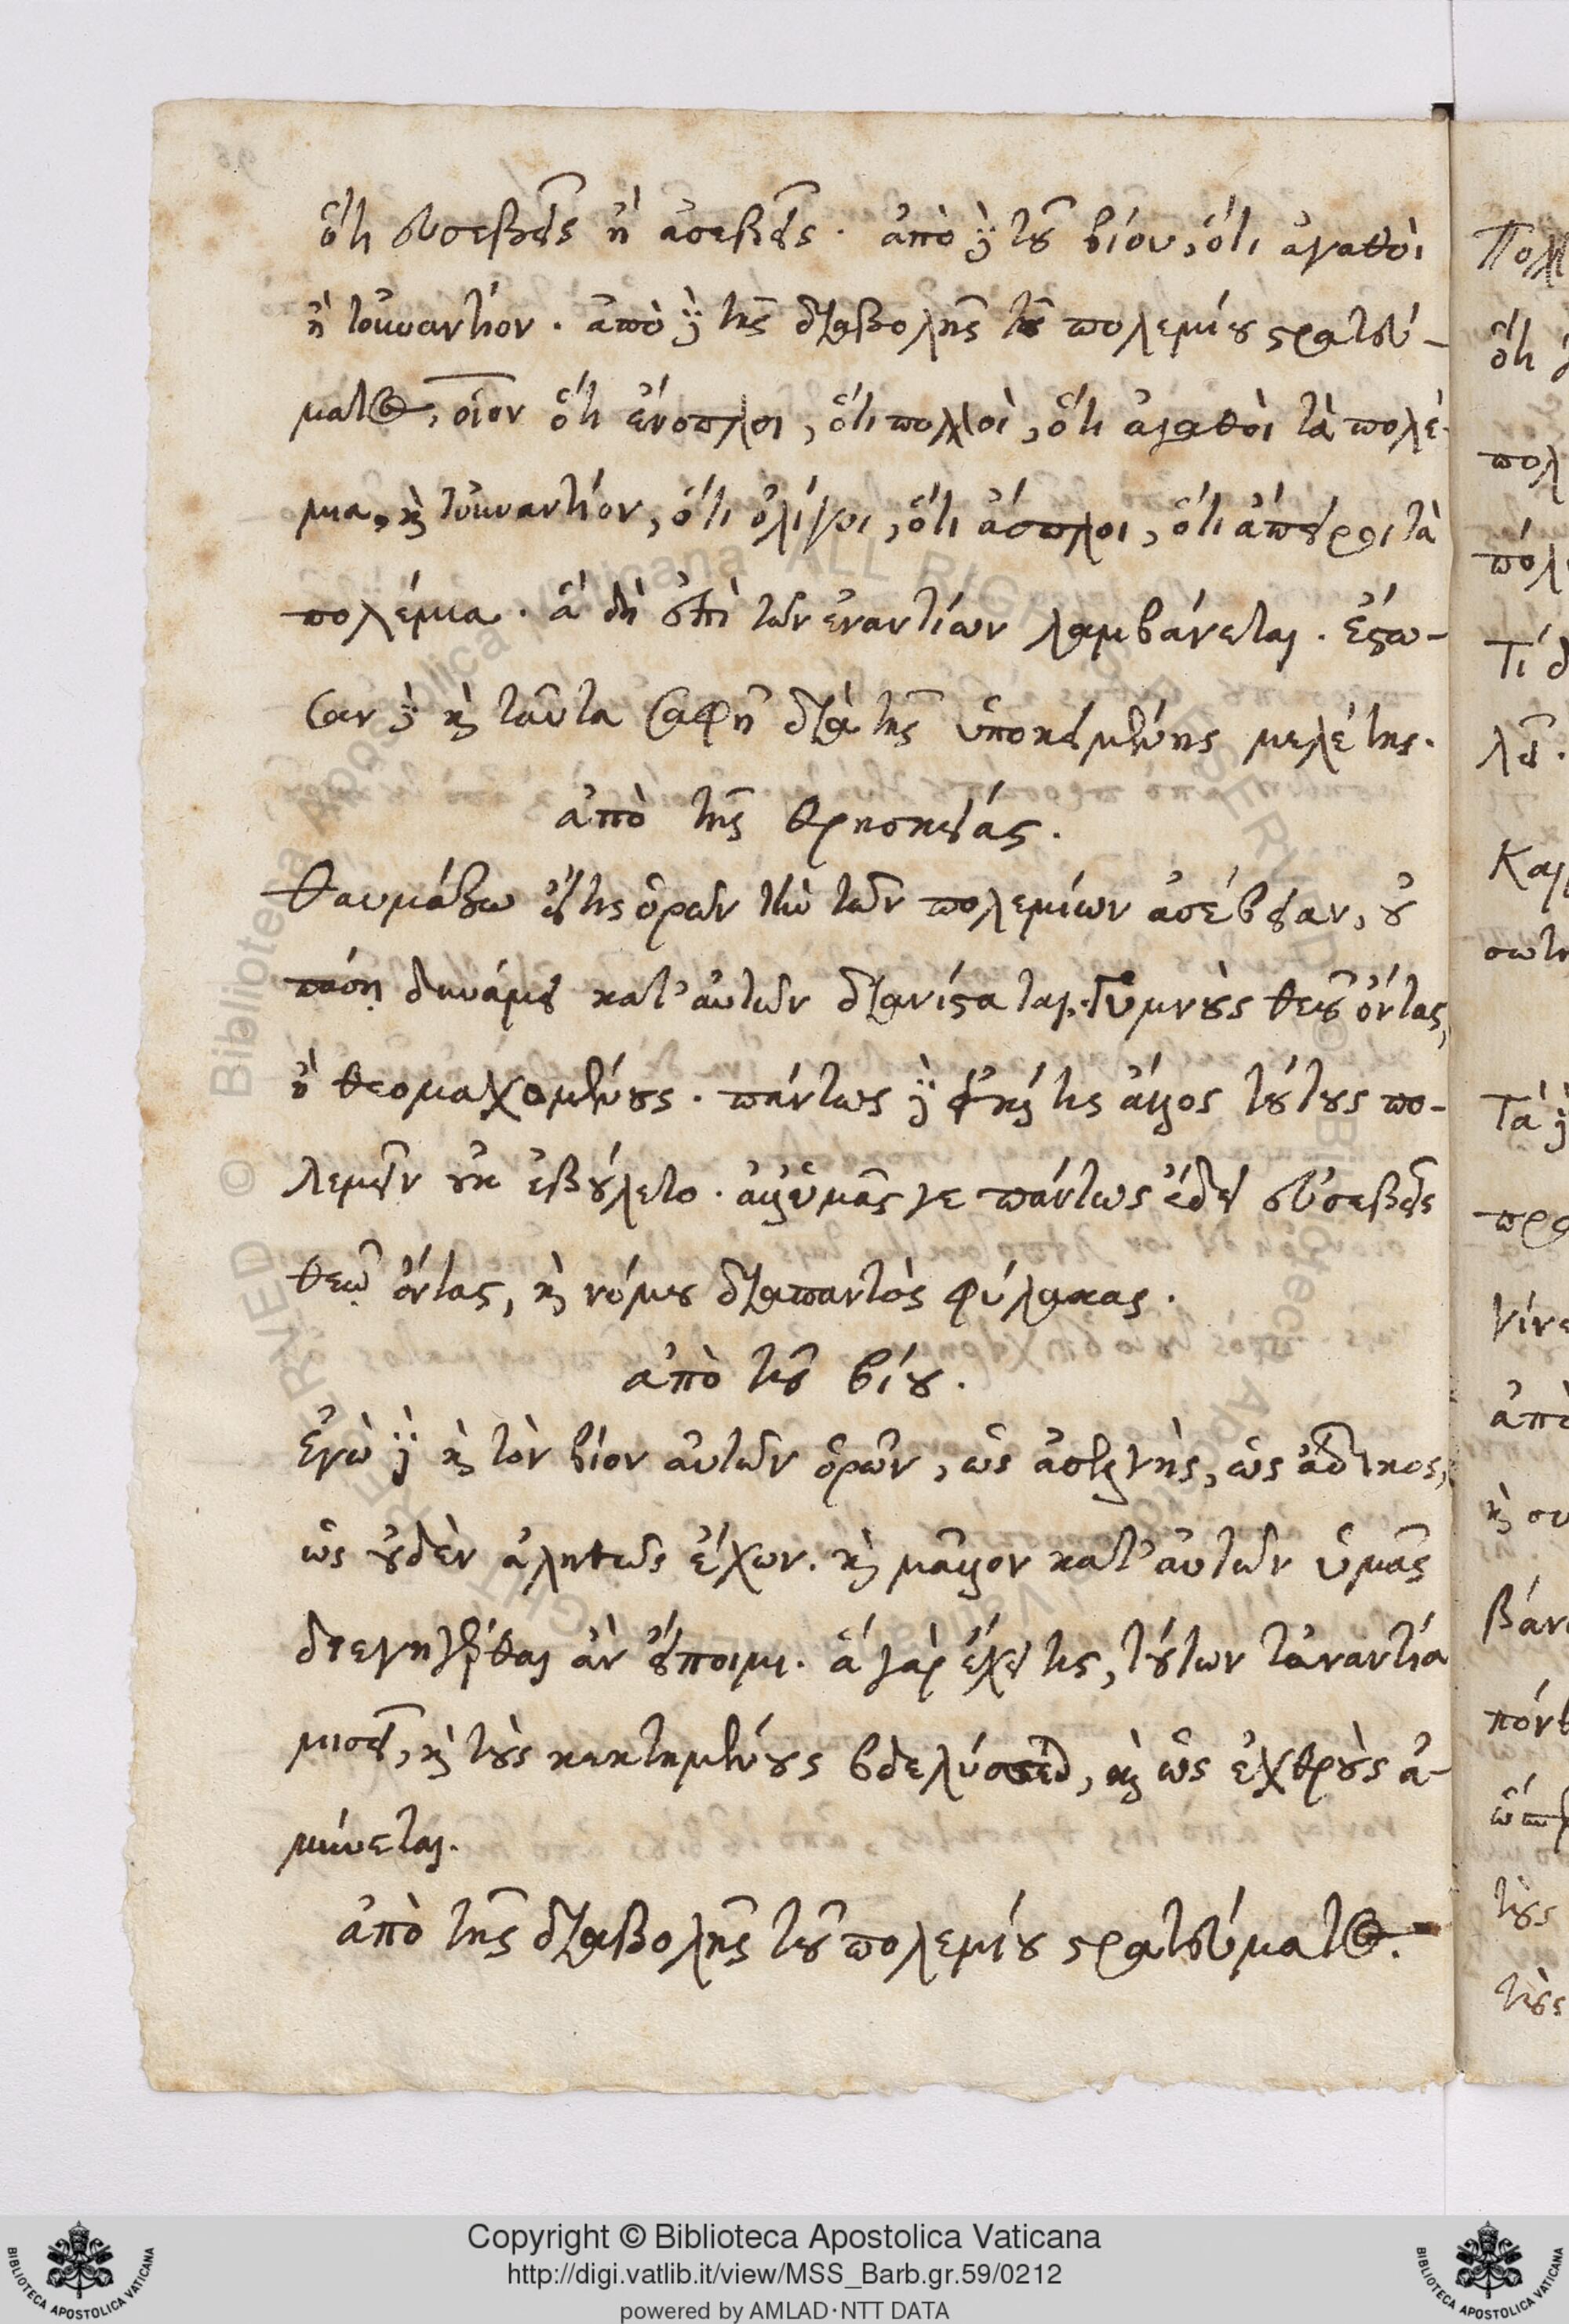 ὅτι εὐσεβεῖς ἢ ἀσεβεῖς. ἀπὸ δὲ τοῦ βίου, ὅτι ἀγαθοὶ
ἢ τοὐναντίον. ἀπὸ δὲ τῆς διαβολῆς τοῦ πολεμίου στρατεύ-
ματος, οἷον ὅτι ἔνοπλοι, ὅτι πολλοὶ, ὅτι ἀγαθοὶ τὰ πολέ-
μια, καὶ τοὐναντίον, ὅτι ὀλίγοι, ὅτι ἄοπλοι, ὅτι ἄπειροι τὰ
πολέμια. ἃ δὴ ἐπὶ τῶν ἐναντίων λαμβάνεται. ἔστω-
σαν δὲ καὶ ταῦτα σαφῆ διὰ τῆς ὑποκειμένης μελέτης.
ἀπὸ τῆς θρησκείας.
θαυμάζω εἴ τις ὁρῶν τὴν τῶν πολεμίων ἀσέβειαν, οὐ
πάσῃ δυνάμει κατ' αὐτῶν διανίσταται. γυμνοὺς θεοῦ ὄντας,
ἢ θεομαχομένους. πάντως δὲ εἰ καί τις ἄλλος τούτους πο-
λεμεῖν οὐκ ἐβούλετο. ἀλλ' ὑμᾶς γε πάντως ἔδει εὐσεβεῖς
θεῷ ὄντας, καὶ νόμου διαπαντὸς φύλακας.
ἀπὸ τοῦ βίου.
ἐγὼ δὲ καὶ τὸν βίον αὐτῶν ὁρῶν, ὡς ἀσελγὴς, ὡς ἄδικος,
ὡς οὐδὲν ἀληθῶς ἔχων. καὶ μᾶλλον κατ' αὐτῶν ὑμᾶς
διεγηγέρθαι ἂν εἴποιμι. ἃ γὰρ ἔχει τις, τούτων τἀναντία
μισεῖ, καὶ τοὺς κεκτημένους βδελύσσεται, καὶ ὡς ἐχθροὺς ἀ-
μύνεται.
ἀπὸ τῆς διαβολῆς τοῦ πολεμίου στρατεύματος.
Copyright © Biblioteca Apostolica Vaticana
http://digi.vatlib.it/view/MSS_Barb.gr.59/0212
powered by AMLAD·NTT DATA